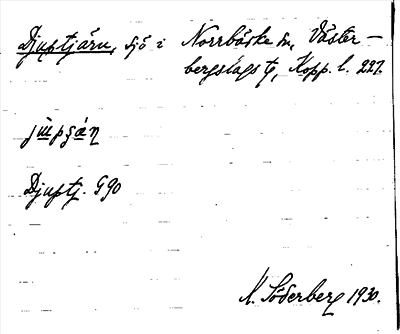 Djuptjärn, sjö i Norrbärke sn, Väster-
bergslags tg, Kopp. l. 227.
jɯpʂäṇ
Djuptj. G90
N. Söderberg 1930.